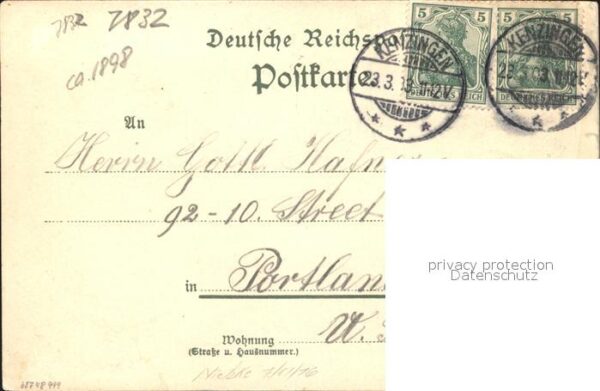 7832 7832
ca. 1898
Deutsche Reichspost
Postkarte
5 5
KENZINGEN KENZINGEN
23.3.
DEUTSCHES REICH
An
Herrn Gottl. Hafn
92-10. Street
in Portlan
U.
Wohnung
(Straße u. Hausnummer.)
privacy protection
Datenschutz